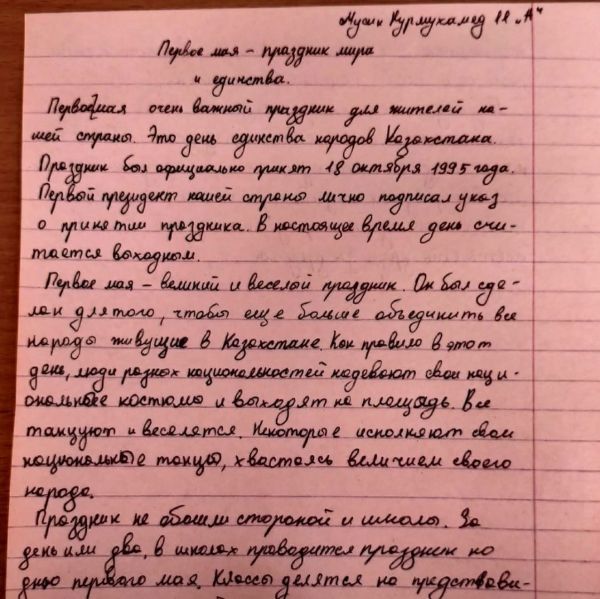 Мусин Нурмухамед 11 „А“
Первое мая – праздник мира
и единства.
Первое мая очень важный праздник для жителей на-
шей страны. Это день единства народов Казахстана.
Праздник был официально принят 18 октября 1995 года.
Первый президент нашей страны лично подписал указ
о принятии праздника. В настоящее время день счи-
тается выходным.
Первое мая – великий и веселый праздник. Он был сде-
лан для того, чтобы еще больше объединить все
народы живущие в Казахстане. Как правило в этот
день, люди разных национальностей надевают свои наци-
ональные костюмы и выходят на площадь. Все
танцуют и веселятся. Некоторые исполняют свои
национальные танцы, хвастаясь величием своего
народа.
Праздник не обошли стороной и школы. За
день или два, в школах проводится праздник ко
дню первого мая. Классы делятся на представи-